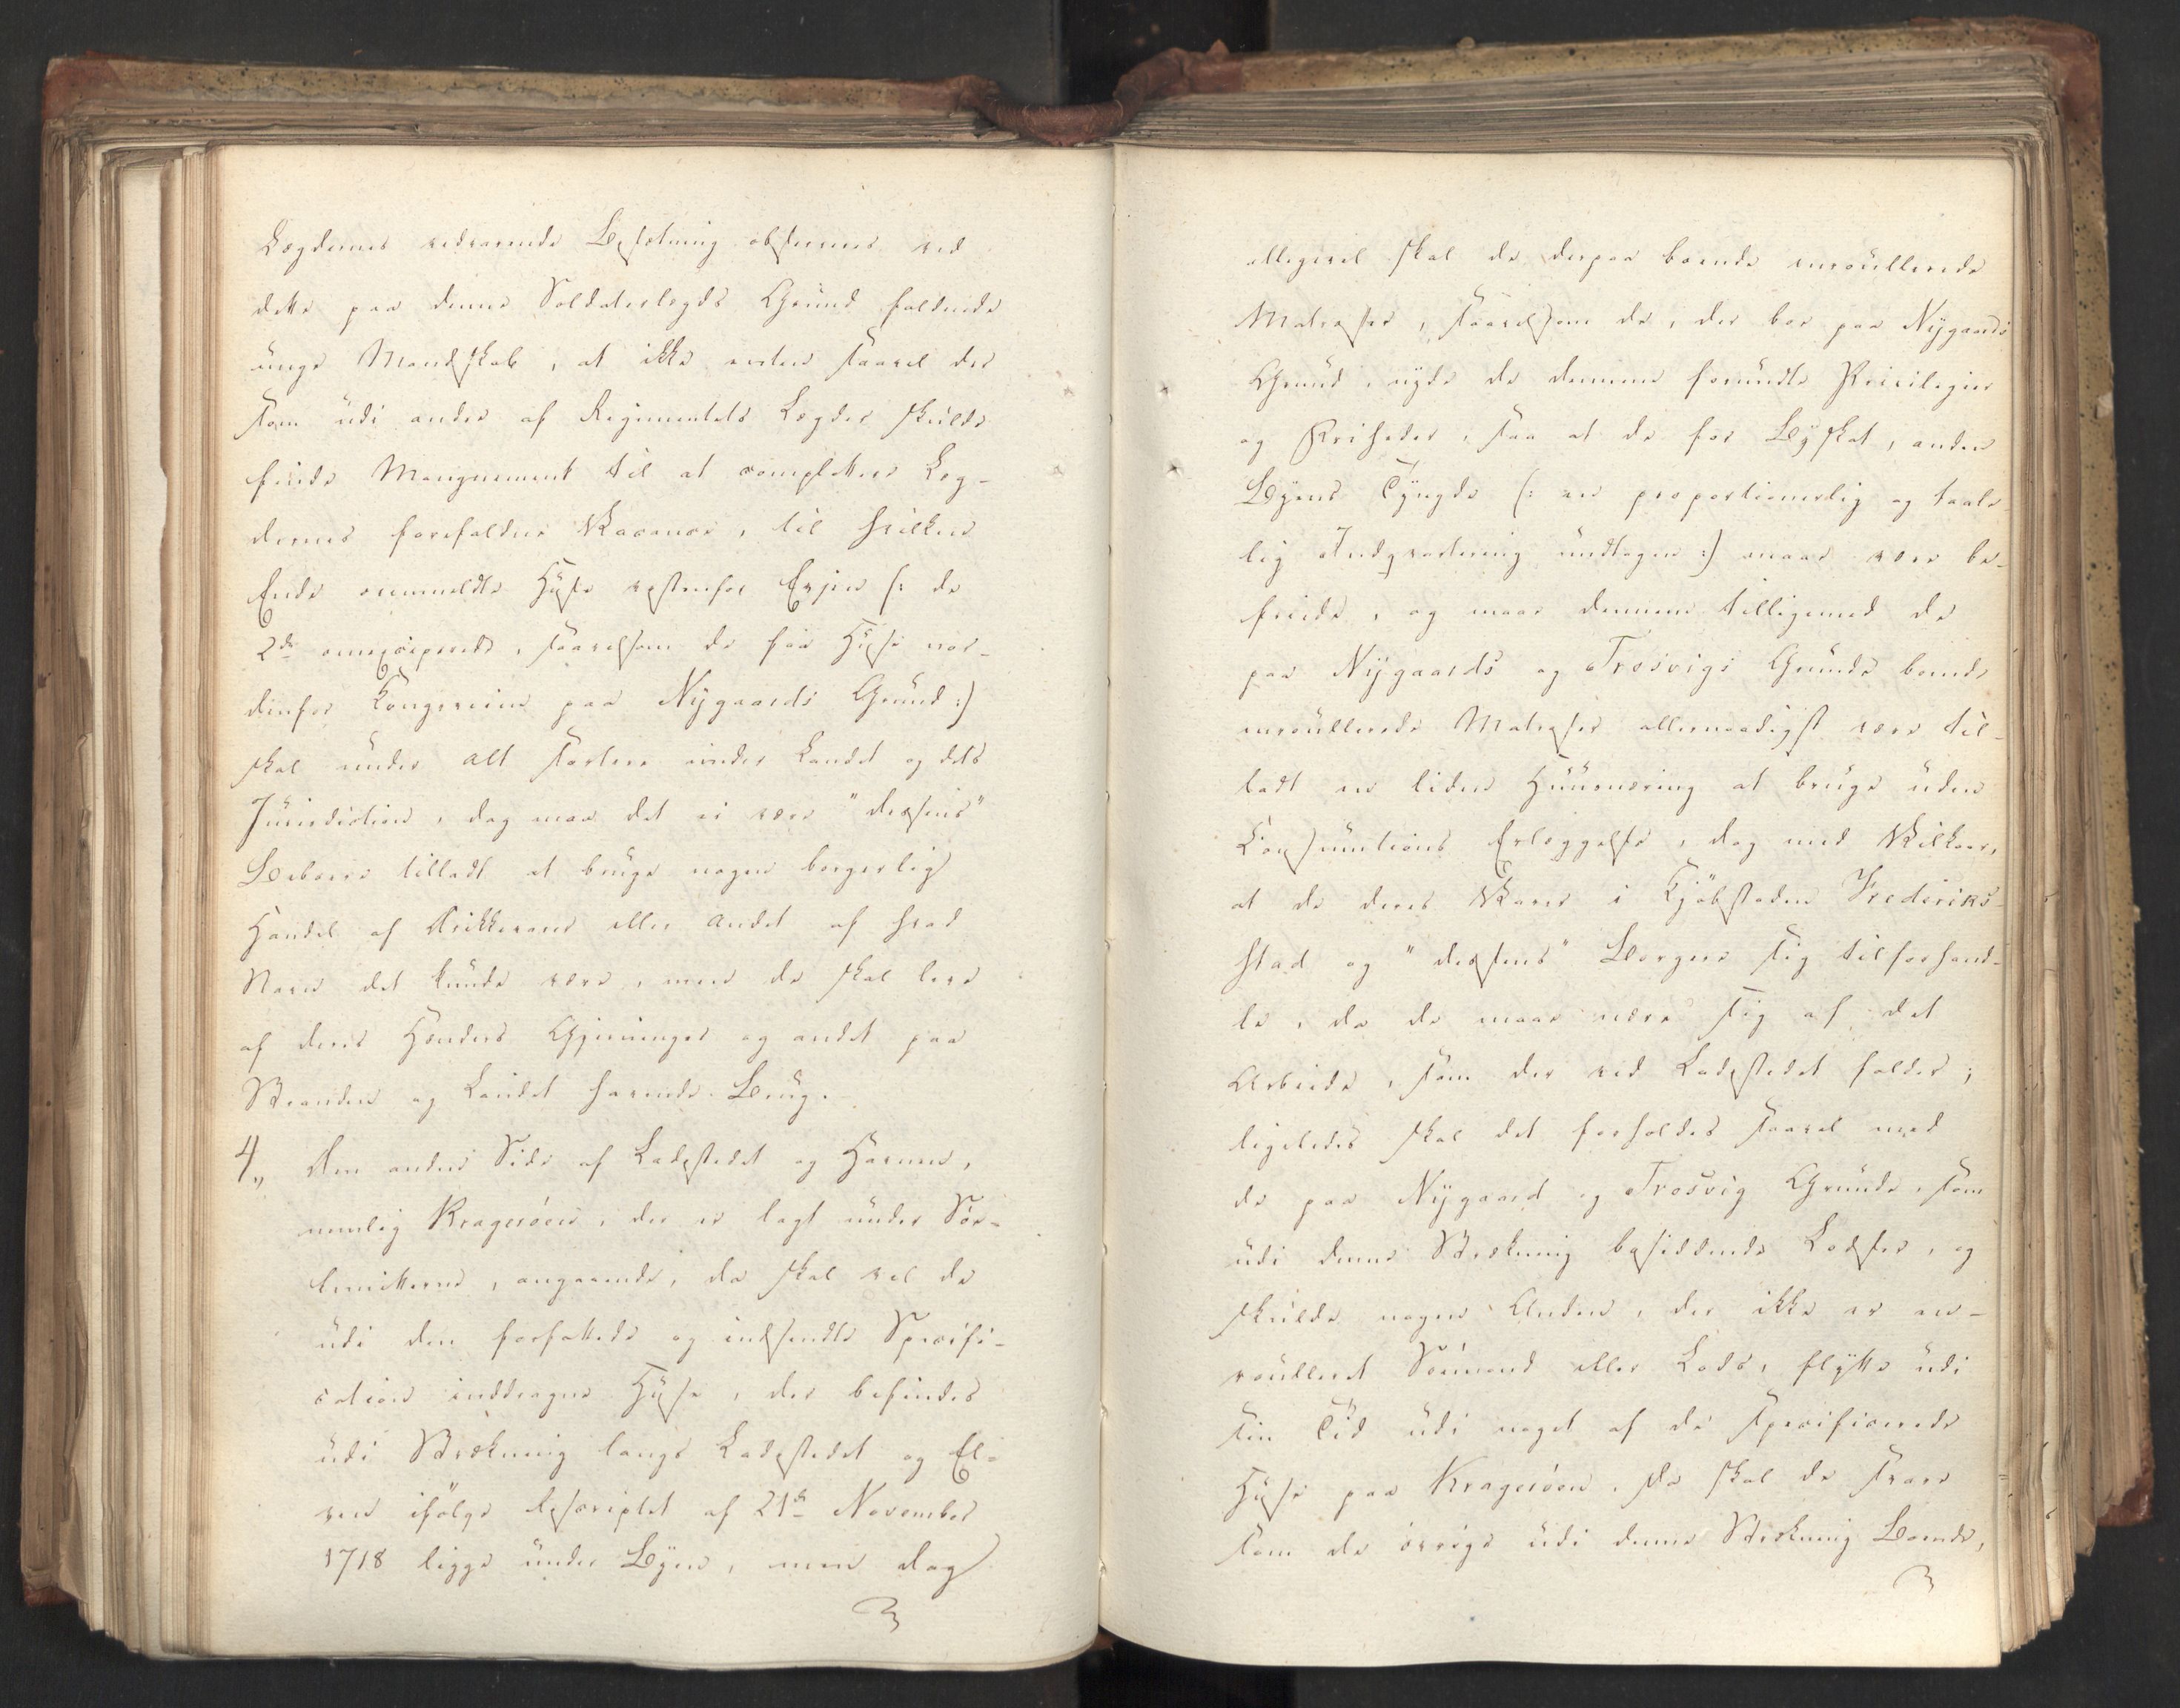 Lægdernes vedvarende Besætning observeres ved
dette paa denne Soldaterlegds Grund faldende
unge Mandskab, at ikke enten saavel der
som udi andre af Regimentets Lægder skulde
finde Manquement til at complettere Læg-
dernes forefaldne Vacance, til hvilken
Ende ovenmeldte Huse vestenfor Evjen (: de
2de omexciperede, saavelsom de faa Huse nor-
denfor Kongeveien paa Nygaards Grund :)
skal under alt sortere under Landet og dets
Jurisdiction, dog maa det ei være "dessens"
Beboere tilladt at bruge nogen borgerlig
Handel af Drikkevare eller andet af hvad
Navn det kunde være, men de skal leve
af deres Hænders Gjerninger og andet paa
Stranden og Landet havende Brug.
4,, Den anden Side af Ladestedet og Havnen,
nemlig Kragerøen, der er lagt under Søe-
limitterne, angaaende, da skal vel de
udi den forfattede og indsendte Specifi-
cation inddragne Huse, der befindes
udi Strekning langs Ladestedet og El-
ven ifølge Rescriptet af 21de November
1718 ligge under Byen, men dog
alligevel skal de derpaa boende enroullerede
Matroser, saavelsom de, der boe paa Nygaards
Grund, nyde de dennem forundte Privilegier
og Friheder, saa at de for Byskat, anden
Byens Tyngde (: en proportionerlig og taale-
lig Indqvartering undtagen :) maae være be-
friede, og maae dennem tilligemed de
paa Nygaards og Trosvigs Grunde boende
enroullerede Matroser allernaadigst være til-
ladt en liden Huusnæring at bruge uden
Consumtions Erlæggelse, dog med Vilkaar,
at de deres Varer i Kjøbstaden Frederiks-
stad og "dessens" Borgere sig tilforhand-
le, da de maae nære sig af det
Arbeide, som der ved Ladestedet falder;
ligeledes skal det forholdes saavel med
de paa Nygaard og Trosvig Grunde, som
udi denne Strækning besiddende Lodser, og
skulde nogen Anden, der ikke er en-
roulleret Søemand eller Lods, flytte udi
sin Tid udi noget af de specificerede
Huse paa Kragerøen, da skal de svare
som de øvrige udi denne Strækning Boende,